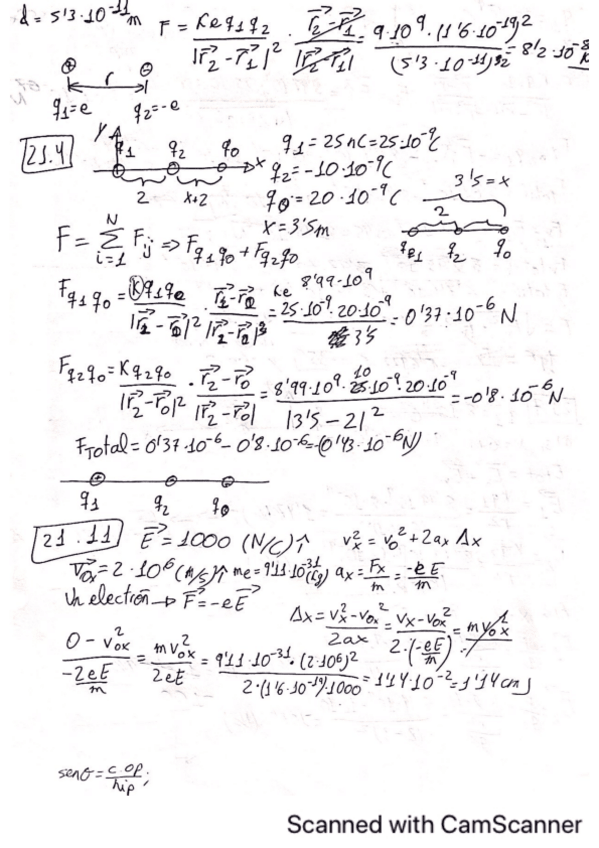 d = 5'3·10^-11 m F = Ke q1 q2 / |r2 - r1|^2 · r2 - r1 / |r2 - r1| = 9·10^9·(1'6·10^-19)^2 / (5'3·10^-11)^2 = 8'2·10^-8
⊕ ⊖
r
q1=e q2=-e
21.4 y q1 q2 q0 x q1 = 25nC = 25·10^-9 C
2 x+2 q2 = -10·10^-9 C
q0 = 20·10^-9 C 3'5 = x
x = 3'5 m 2
F = Σ i=1 N Fij ⇒ Fq1q0 + Fq2q0 q1 q2 q0
Fq1q0 = K q1q0 / |r1 - r0|^2 · r1 - r0 / |r1 - r0| = Ke 8'99·10^9 25·10^-9·20·10^-9 / 3'5 = 0'37·10^-6 N
Fq2q0 = K q2q0 / |r2 - r0|^2 · r2 - r0 / |r2 - r0| = 8'99·10^9·10·10^-9·20·10^-9 / |3'5 - 2|^2 = -0'8·10^-6 N
FTotal = 0'37·10^-6 - 0'8·10^-6 = (-0'43·10^-6 N)
q1 q2 q0
21.11 E = 1000 (N/C) î vx^2 = v0^2 + 2ax Δx
V0x = 2·10^6 (m/s) î me = 9'11·10^-31 (kg) ax = Fx/m = -eE/m
Un electrón → F = -eE
Δx = vx^2 - v0x^2 / 2ax = vx - v0x^2 / 2·(-eE/m) = m v0x^2
0 - v0x^2 / -2eE/m = m v0x^2 / 2eE = 9'11·10^-31·(2·10^6)^2 / 2·(1'6·10^-19)·1000 = 1'14·10^-2 = 1'14 cm
senθ = c.op/hip;
Scanned with CamScanner